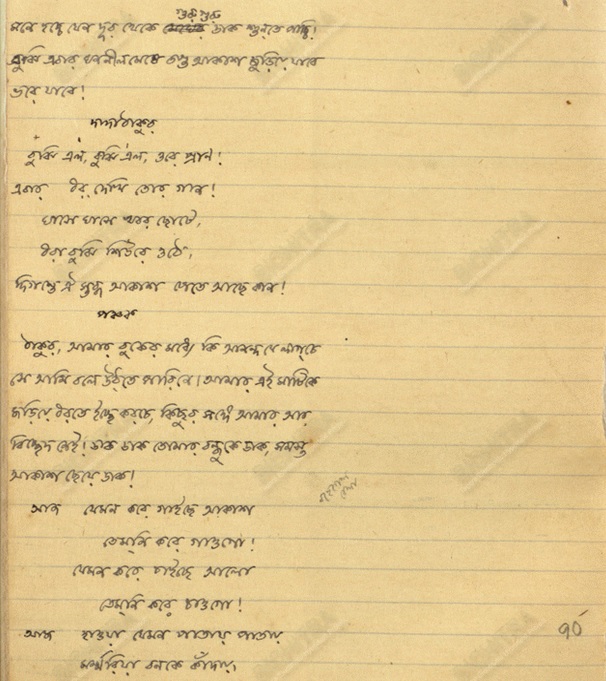 গুরু গুরু
মনে হচ্চে যেন দূর থেকে ডাক শুনতে পাচ্চি!
বুঝি এবার ঘননীলমেঘে তপ্ত আকাশ জুড়িয়ে যাবে
ভরে যাবে!
দাদাঠাকুর
বুঝি এল, বুঝি এল, ওরে প্রাণ!
এবার ধর্ দেখি তোর গান!
ঘাসে ঘাসে খবর ছোটে,
ধরা বুঝি শিউরে ওঠে,
দিগন্তে ঐ স্তব্ধ আকাশ পেতে আছে কান!
পঞ্চক
ঠাকুর, আমার বুকের মধ্যে কি আনন্দ যে লাগ্‌চে
সে আমি বলে উঠতে পারিনে। আমার এই মাটিকে
জড়িয়ে ধরতে ইচ্ছে করচে, কিছুর সঙ্গে আমার আর
বিচ্ছেদ নেই! ডাক ডাক তোমার বন্ধুকে ডাক, সমস্ত
আকাশ ছেয়ে ডাক!
আজ যেমন করে গাইছে আকাশ
তেম্‌নি করে গাওগো!
যেমন করে চাইছে আলো
তেম্‌নি করে চাওগো!
আজ হাওয়া যেমন পাতায় পাতায়
মর্ম্মরিয়া বনকে কাঁদায়,